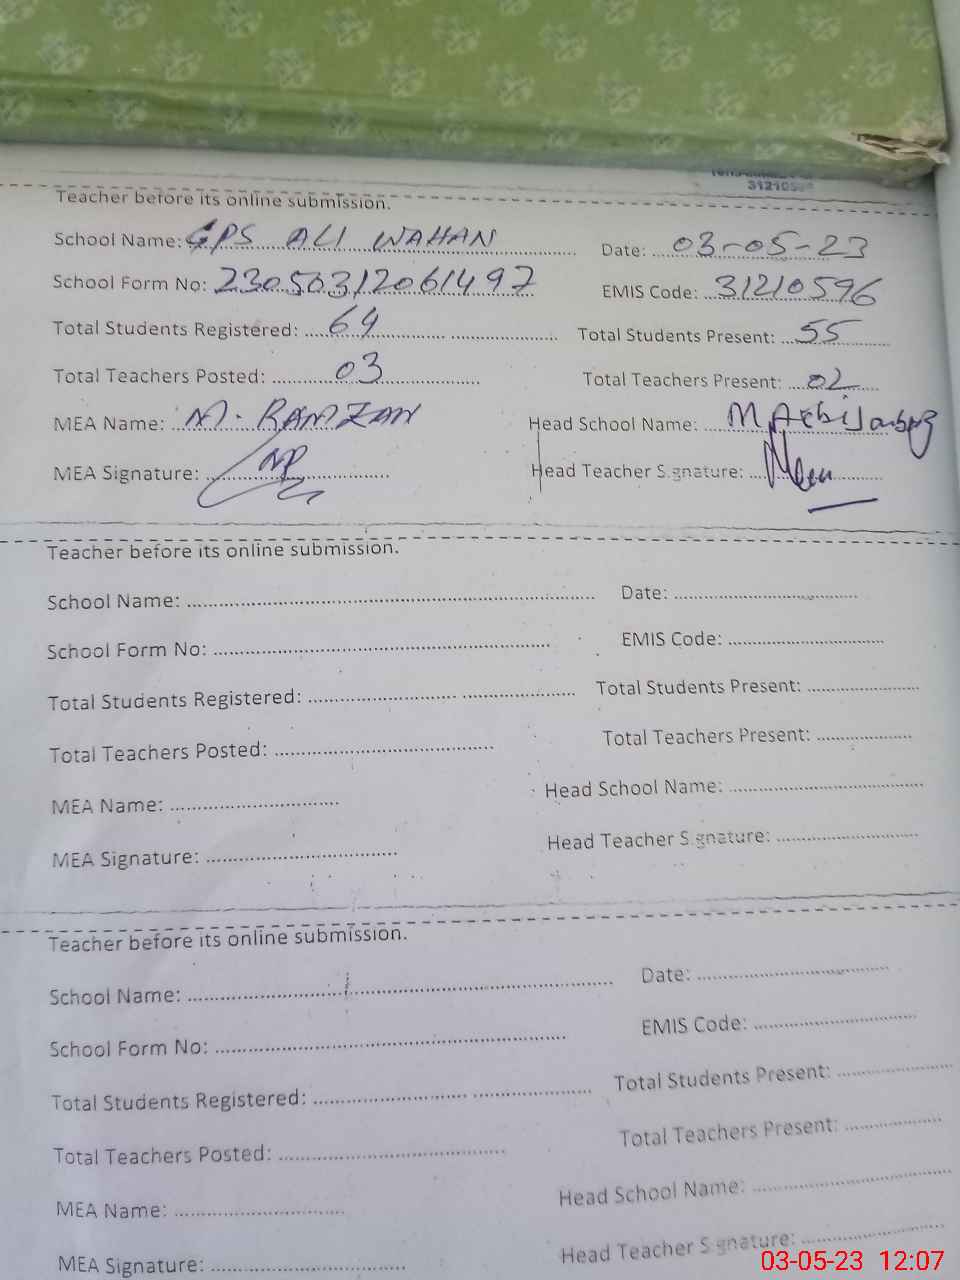 312105
Teacher before its online submission.
School Name: GPS ALI WAHAN Date: 03-05-23
School Form No: 23050312061497 EMIS Code: 31210596
Total Students Registered: 64 Total Students Present: 55
Total Teachers Posted: 03 Total Teachers Present: 02
MEA Name: M. RAMZAN Head School Name: M
MEA Signature: Head Teacher S.gnature:
Teacher before its online submission.
School Name: Date:
School Form No: EMIS Code:
Total Students Registered: Total Students Present:
Total Teachers Posted: Total Teachers Present:
MEA Name: Head School Name:
MEA Signature: Head Teacher S.gnature:
Teacher before its online submission.
School Name: Date:
School Form No: EMIS Code:
Total Students Registered: Total Students Present:
Total Teachers Posted: Total Teachers Present:
MEA Name: Head School Name:
MEA Signature: Head Teacher S.gnature:
03-05-23 12:07